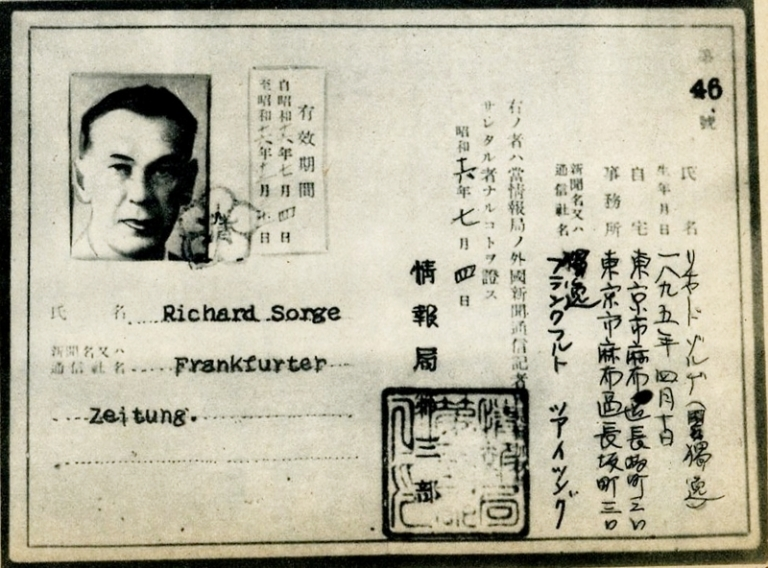 第46號
氏名 リヒヤード ゾルゲ (國籍 獨逸)
生年月日 一八九五年四月十日
自宅 東京市麻布區長坂町三〇
事務所 東京市麻布區長坂町三〇
新聞名又ハ
通信社名
獨逸
フランクフルト ツアイツング
右ノ者ハ當情報局ノ外國新聞通信記者
サレタル者ナルコトヲ證ス
昭和十六年七月四日
情報局
第三部
有效期間
自昭和十六年七月四日
至昭和十六年 月 日
氏 名 Richard Sorge
新聞名又ハ
通信社名
Frankfurter
Zeitung.